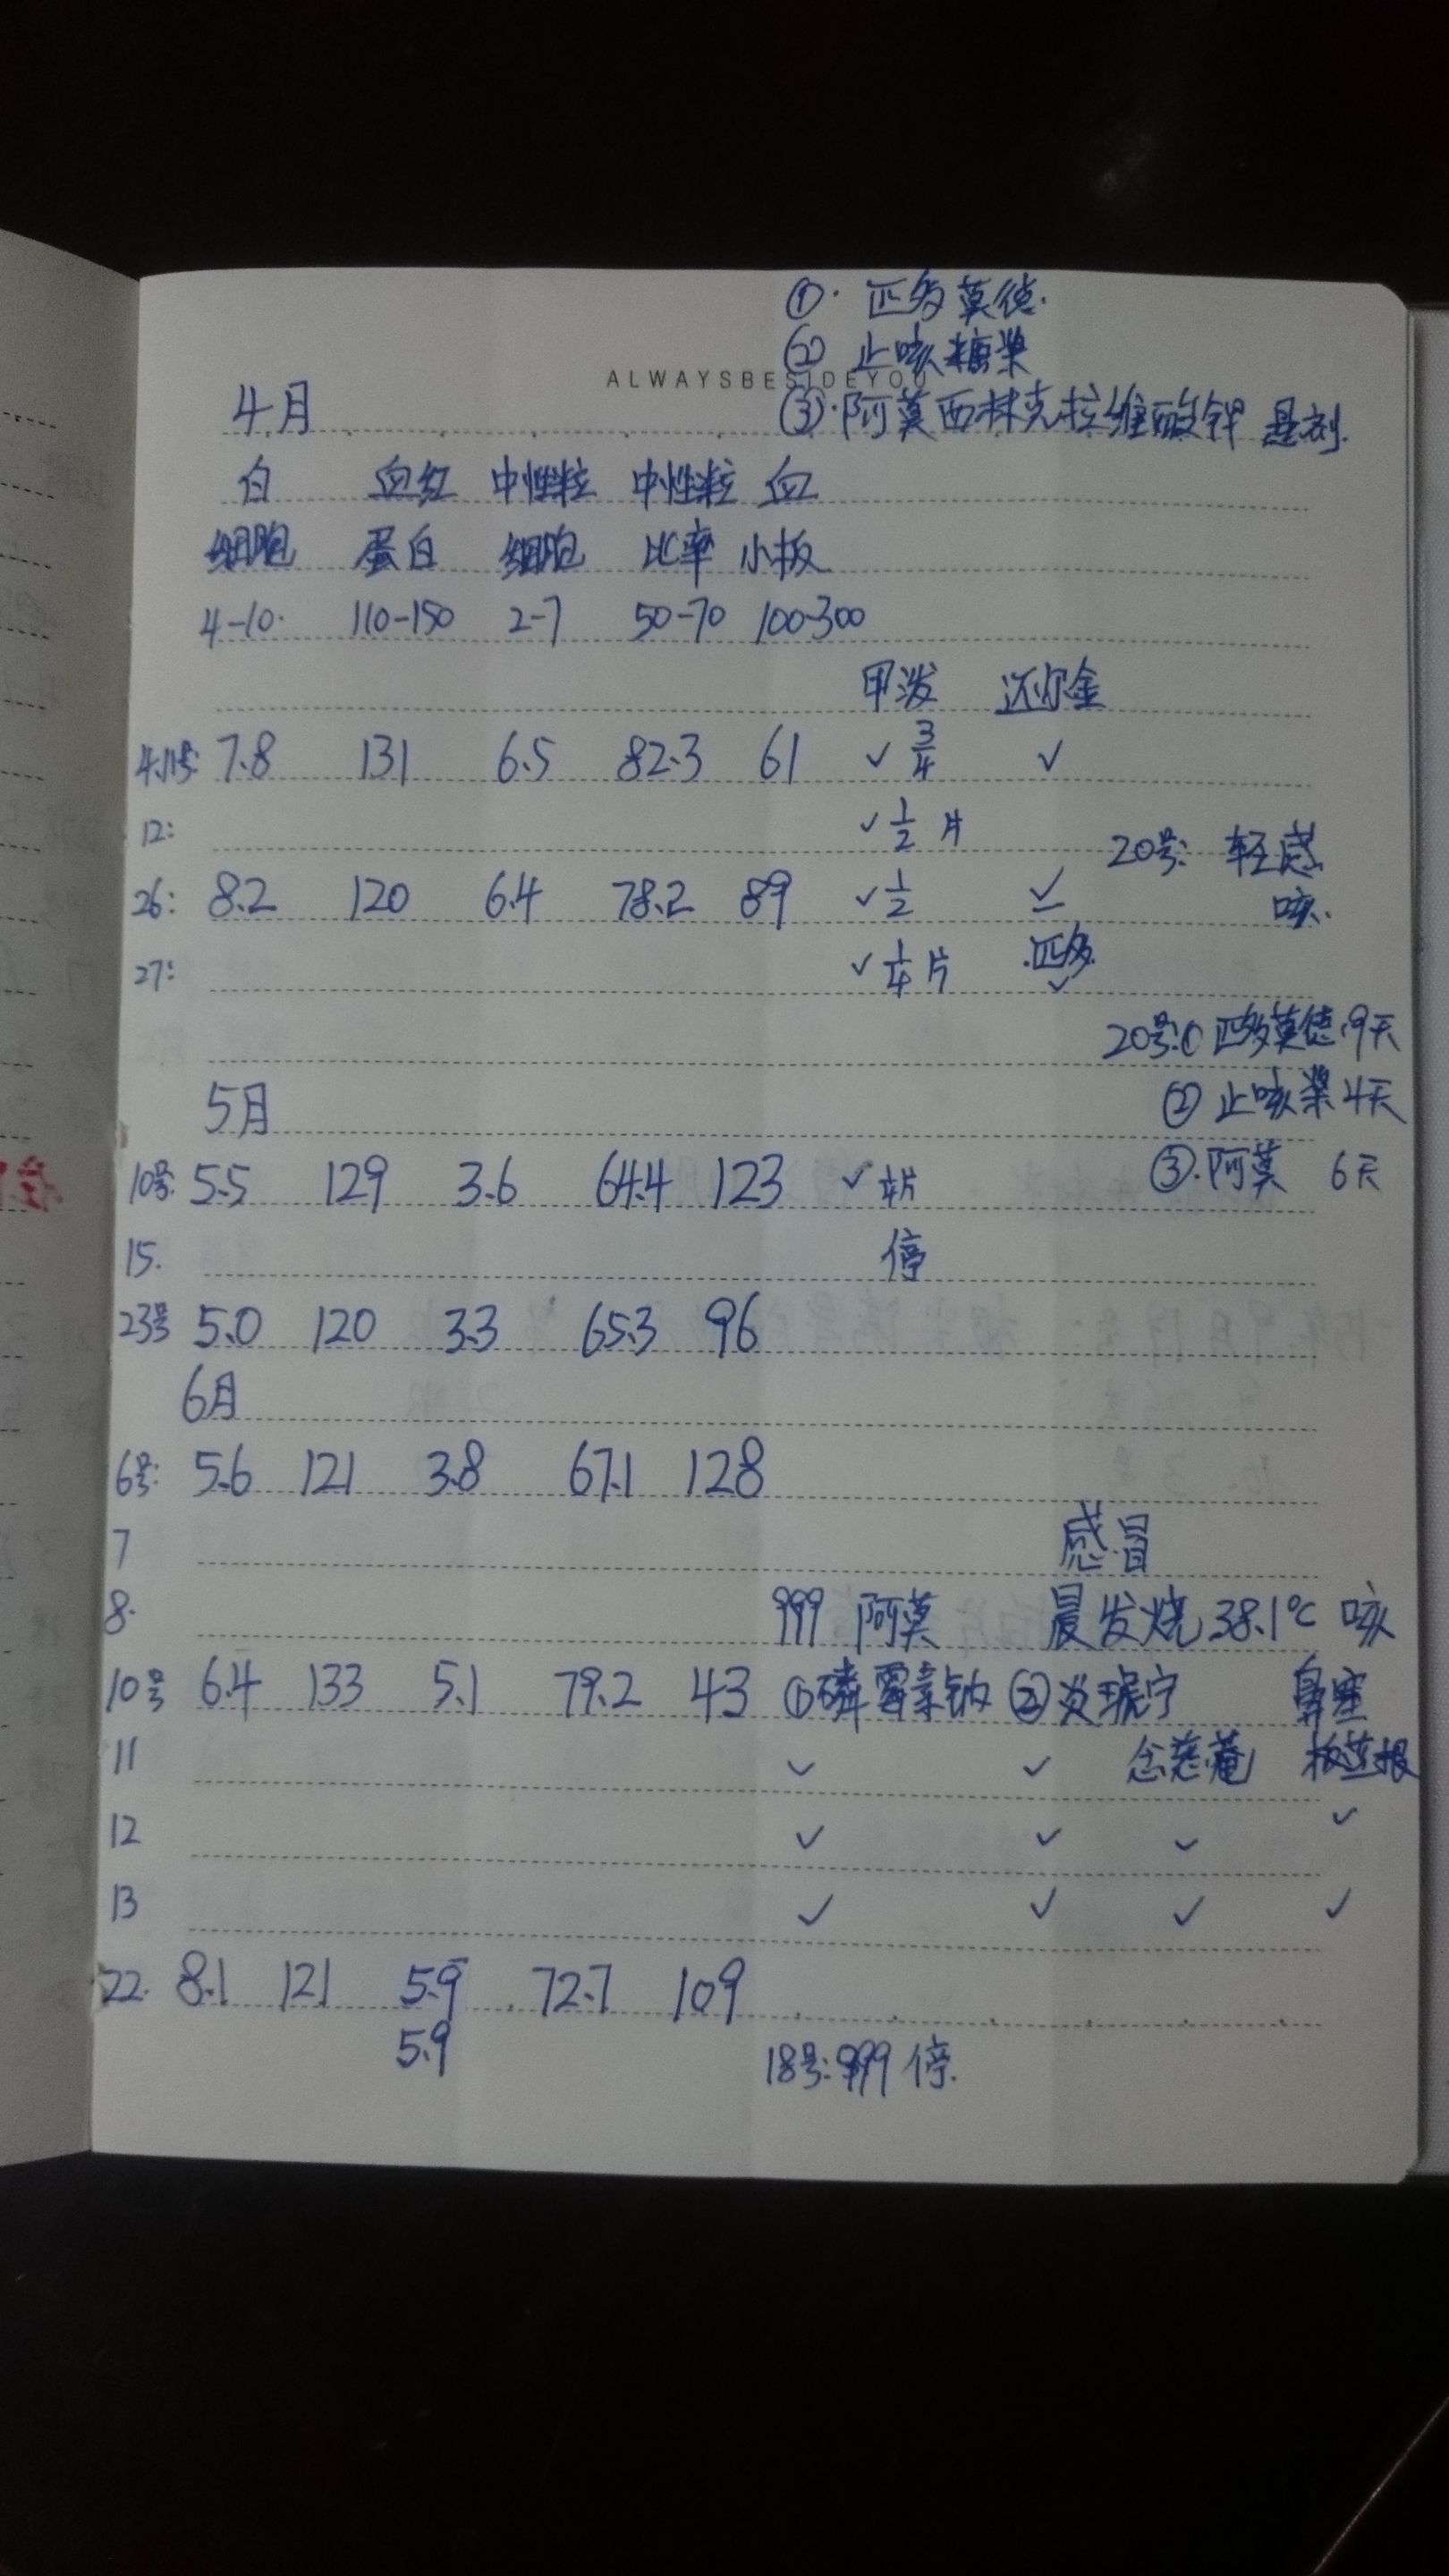 ① 匹多莫德
② 止咳糖浆
ALWAYSBESIDEYOU
4月 ③ 阿莫西林克拉维酸钾 悬剂
白 血红 中性粒 中性粒 血
细胞 蛋白 细胞 比率 小板
4-10 110-150 2-7 50-70 100-300
甲泼 还尔金
4.11号: 7.8 131 6.5 82.3 61 ✓ 3/4 ✓
12: ✓ 1/2 片 20号: 轻感
26: 8.2 120 6.4 78.2 89 ✓ 1/2 ✓ 咳.
27: ✓ 1/4 片 匹多 ✓
20号: ① 匹多莫德 9天
5月 ② 止咳浆 4天
10号 5.5 129 3.6 64.4 123 ✓ 1/4片 ③ 阿莫 6天
15. 停
23号 5.0 120 3.3 65.3 96
6月
6号: 5.6 121 3.8 67.1 128
7 感冒
8. 999 阿莫 晨发烧 38.1℃ 咳
10号 6.4 133 5.1 79.2 43 ①磷霉素钠 ②炎琥宁 鼻塞
11 ✓ ✓ 念慈菴 板蓝根
12 ✓ ✓ ✓ ✓
13 ✓ ✓ ✓ ✓
22. 8.1 121 5.9 72.7 109
5.9
18号: 999 停.